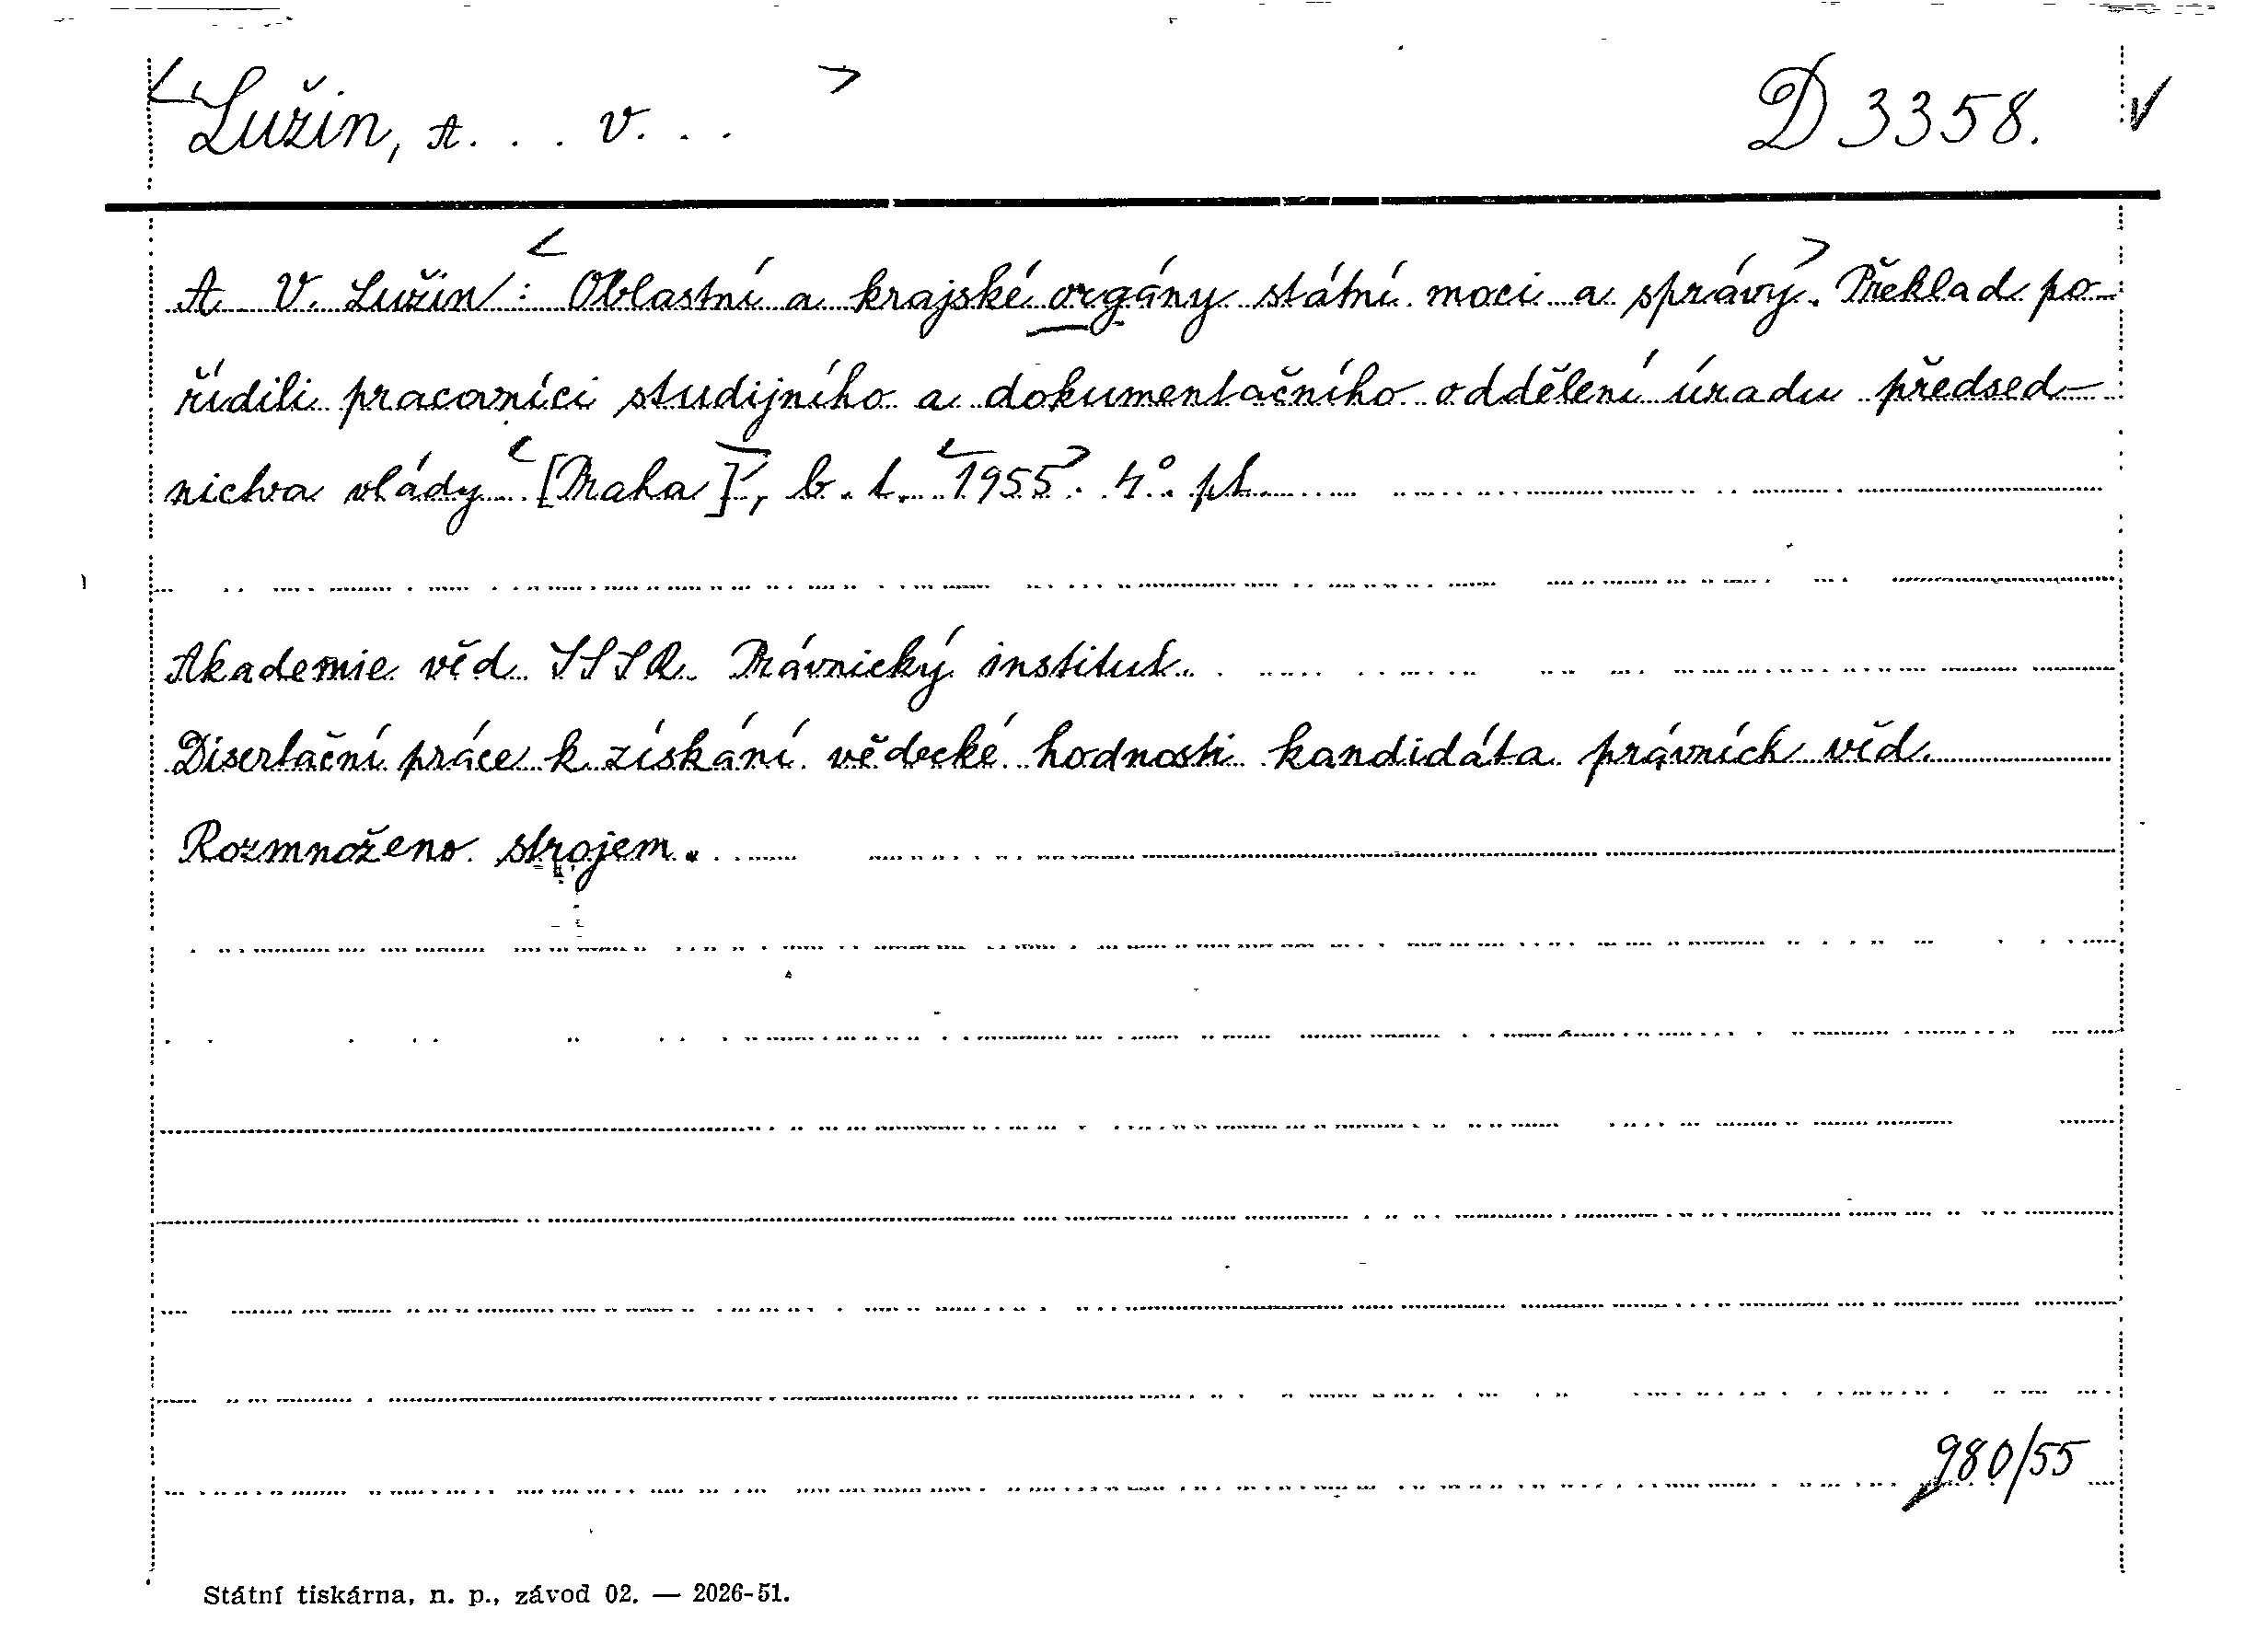 Lužin, A. . . V. . . D 3358.
A. V. Lužin: Oblastní a krajské orgány státní moci a správy. Překlad po-
řídili pracovníci studijního a dokumentačního oddělení úradu předsed-
nictva vlády [Praha], b. t. 1955. 4°. pl.
Akademie věd SSSR. Právnický institut.
Disertační práce k získání vědecké hodnosti kandidáta právních věd.
Rozmnoženo strojem.
980/55
Státní tiskárna, n. p., závod 02. — 2026-51.